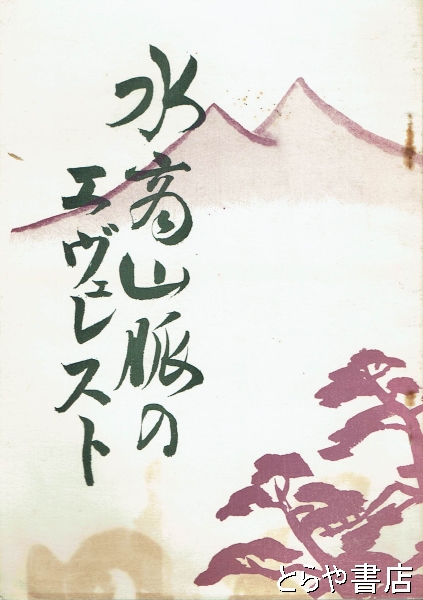 水商山脈の
エヴェレスト
とらや書店